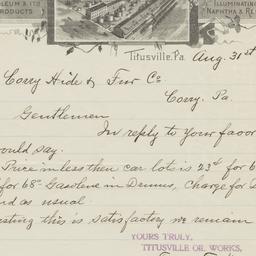 LEUM & ITS
PRODUCTS
ILLUMINATING
NAPHTHA & RE
Titusville, Pa. Aug. 31st
Corry Hide & Fur Co
Corry. Pa.
Gentlemen
In reply to your favor
would say.
Price in less then car lots is 23¢ for 6
for 68° Gasoline in Drums, Charge for
nd as usual
sting this is satisfactory we remain
YOURS TRULY,
TITUSVILLE OIL WORKS,